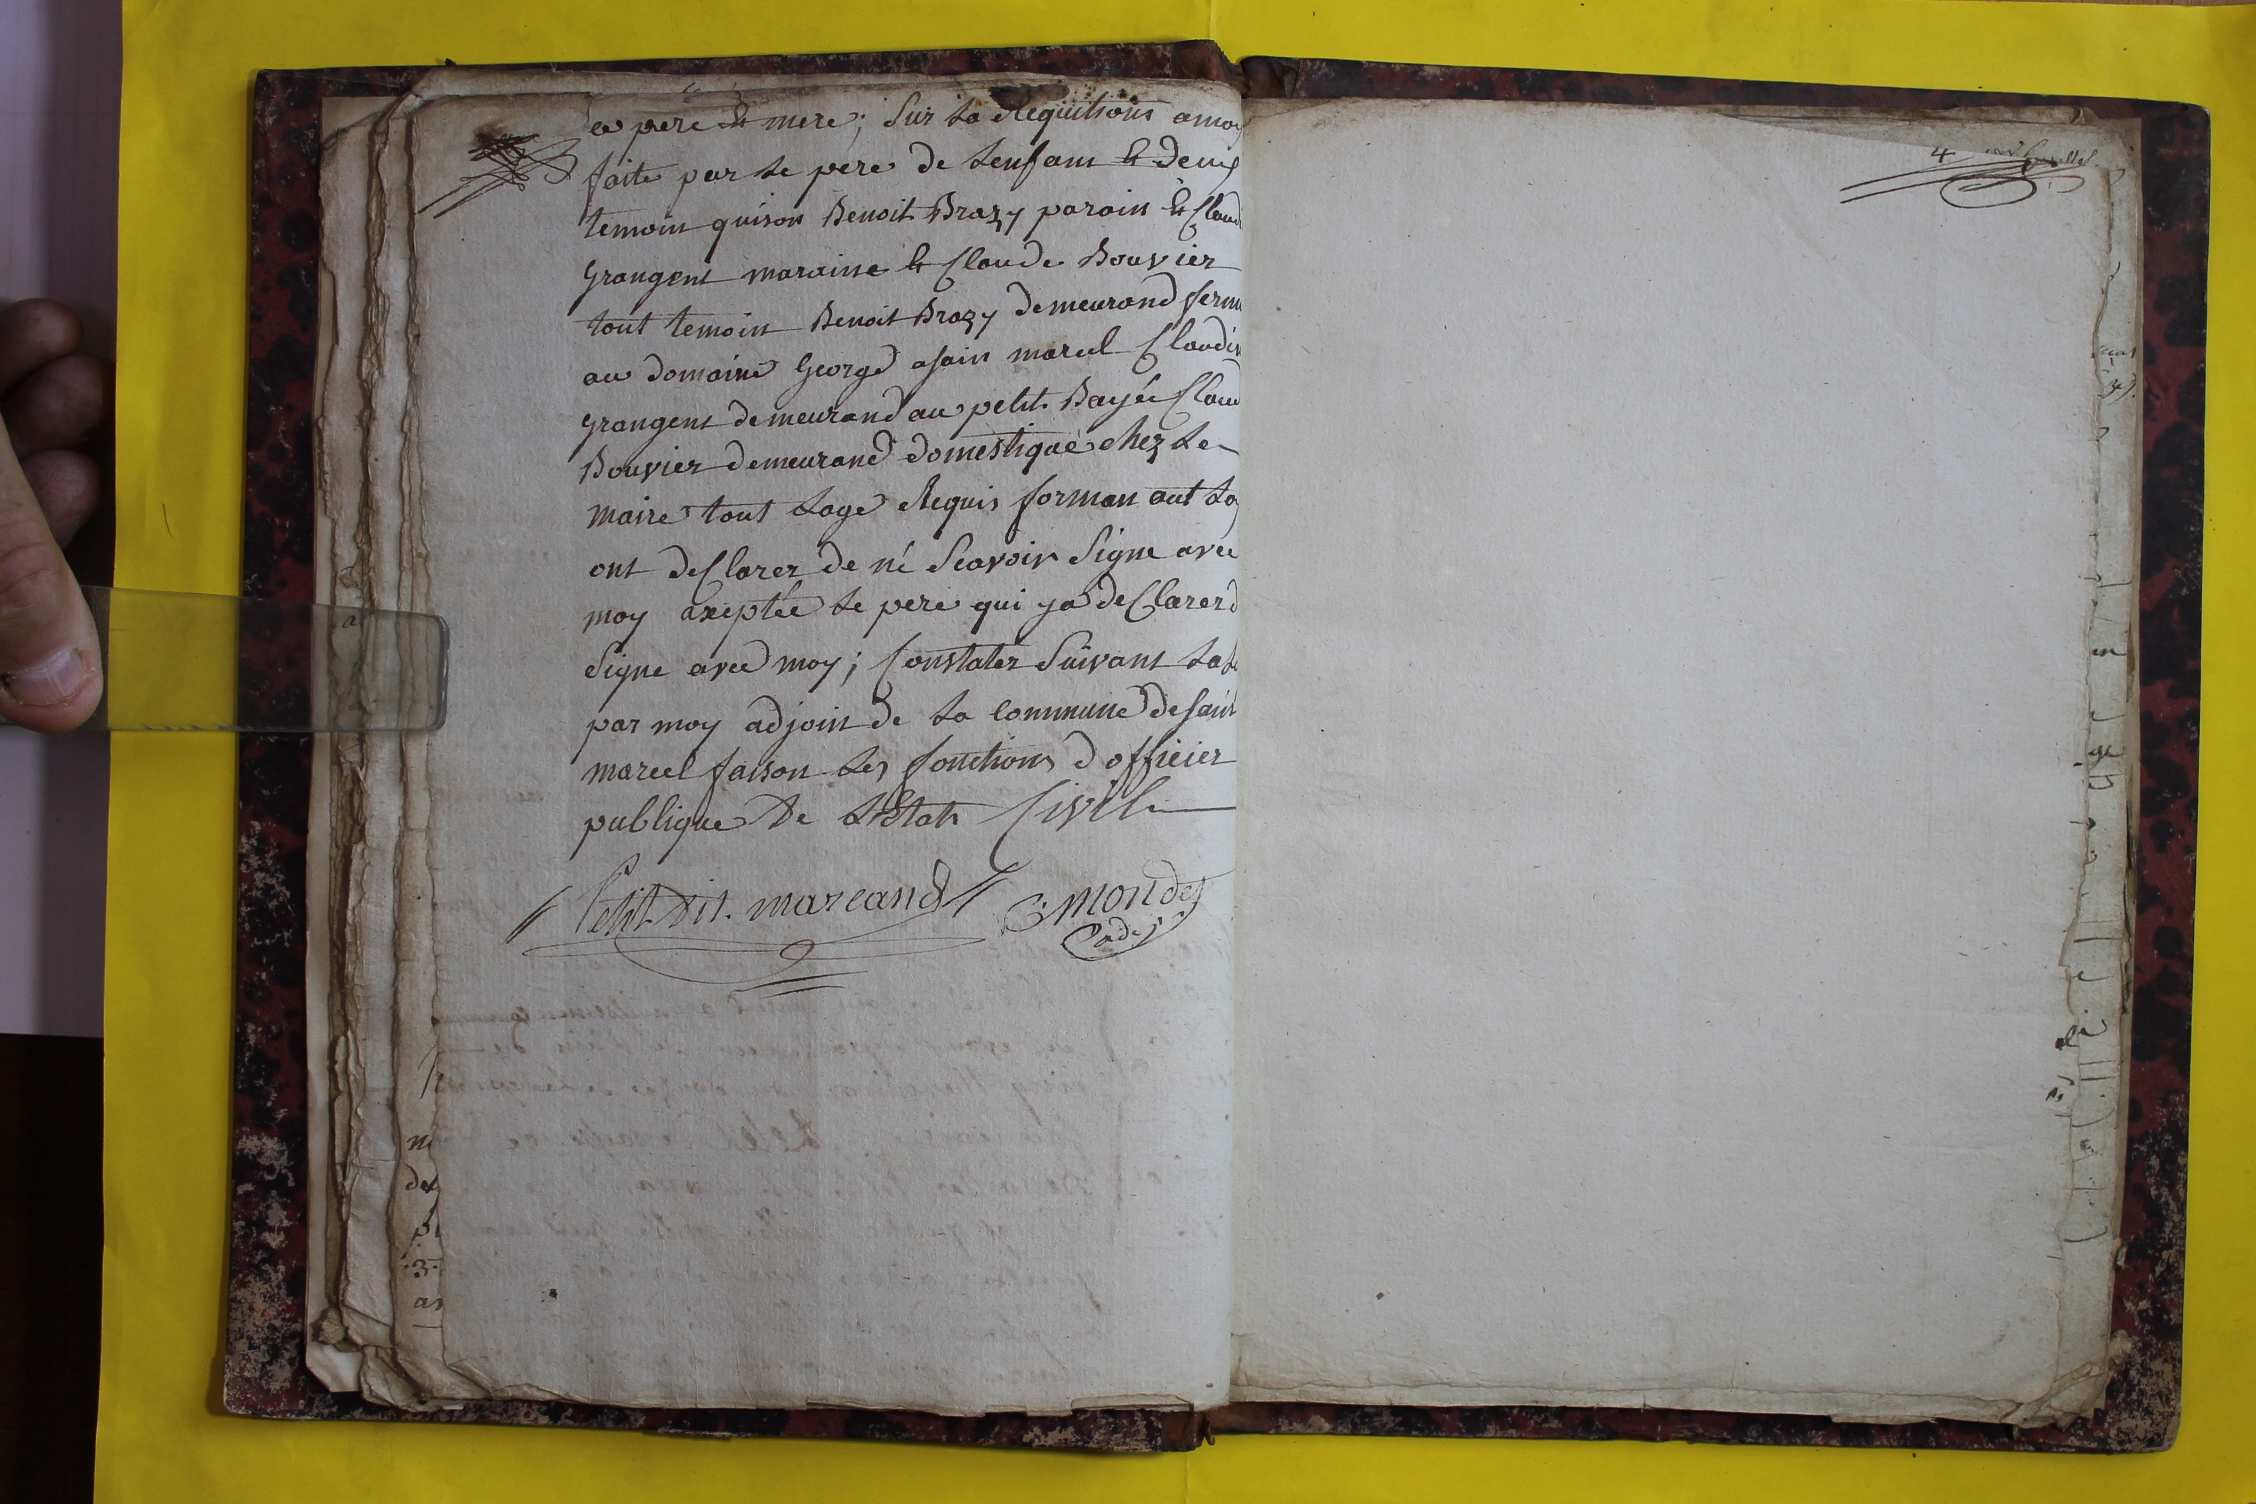 de pere et mere; Sur La Requitions a moy
faite par Le pere de Lenfant et deux
temoin quison Benoit Brazy parain et Claudi
grangent maraine et Claude Bouvier
tout temoin Benoit Brazy demeurand ferm
au domaine George asain marcel Claudin
grangent demeurand au petit Bayée Claud
Bouvier demeurand domestique chez Le
maire tout Lage Requis forman aut La
ont desClarer de né Scavoir Signe avec
moy axeptée Le pere qui ya desClarer d
Signe avec moy; Constater Suivant La L
par moy adjoin de La Commune de saint
marcel faison Les fonctions d officier
publique De LEtat Civil
Petit dit. marcand C: monde
adj
4